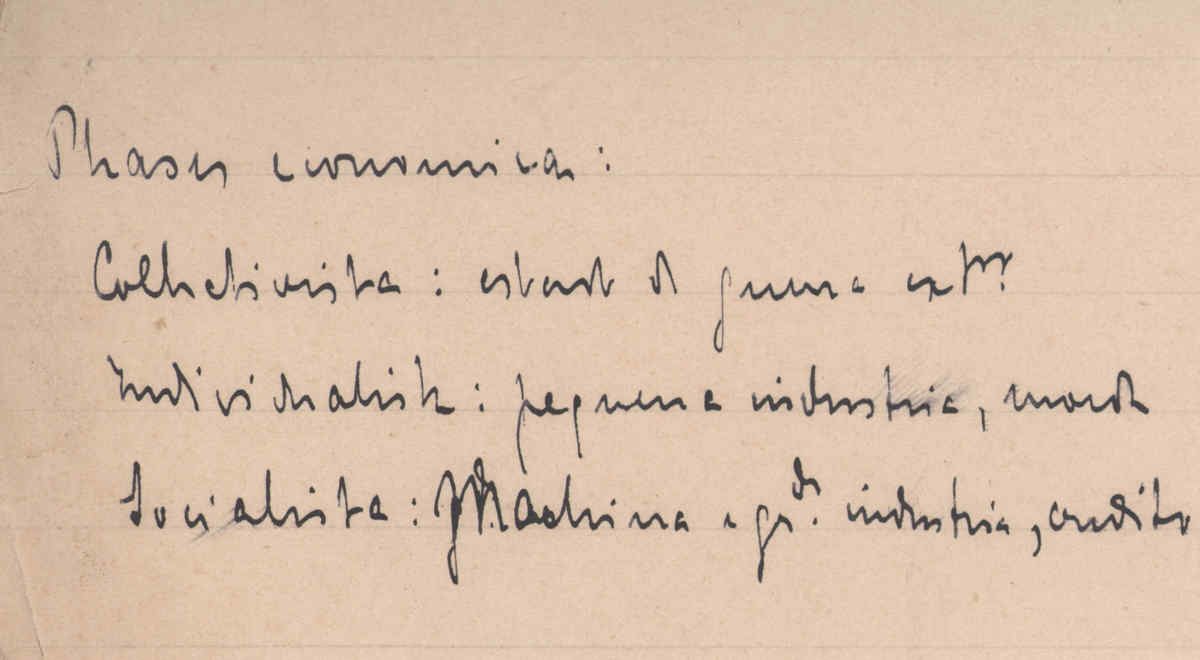 Phases economicas:
Collectivista: estado de guerra extr.
Individualista: pequena industria, moeda
Socialista: Machina e gr.de industria, credito